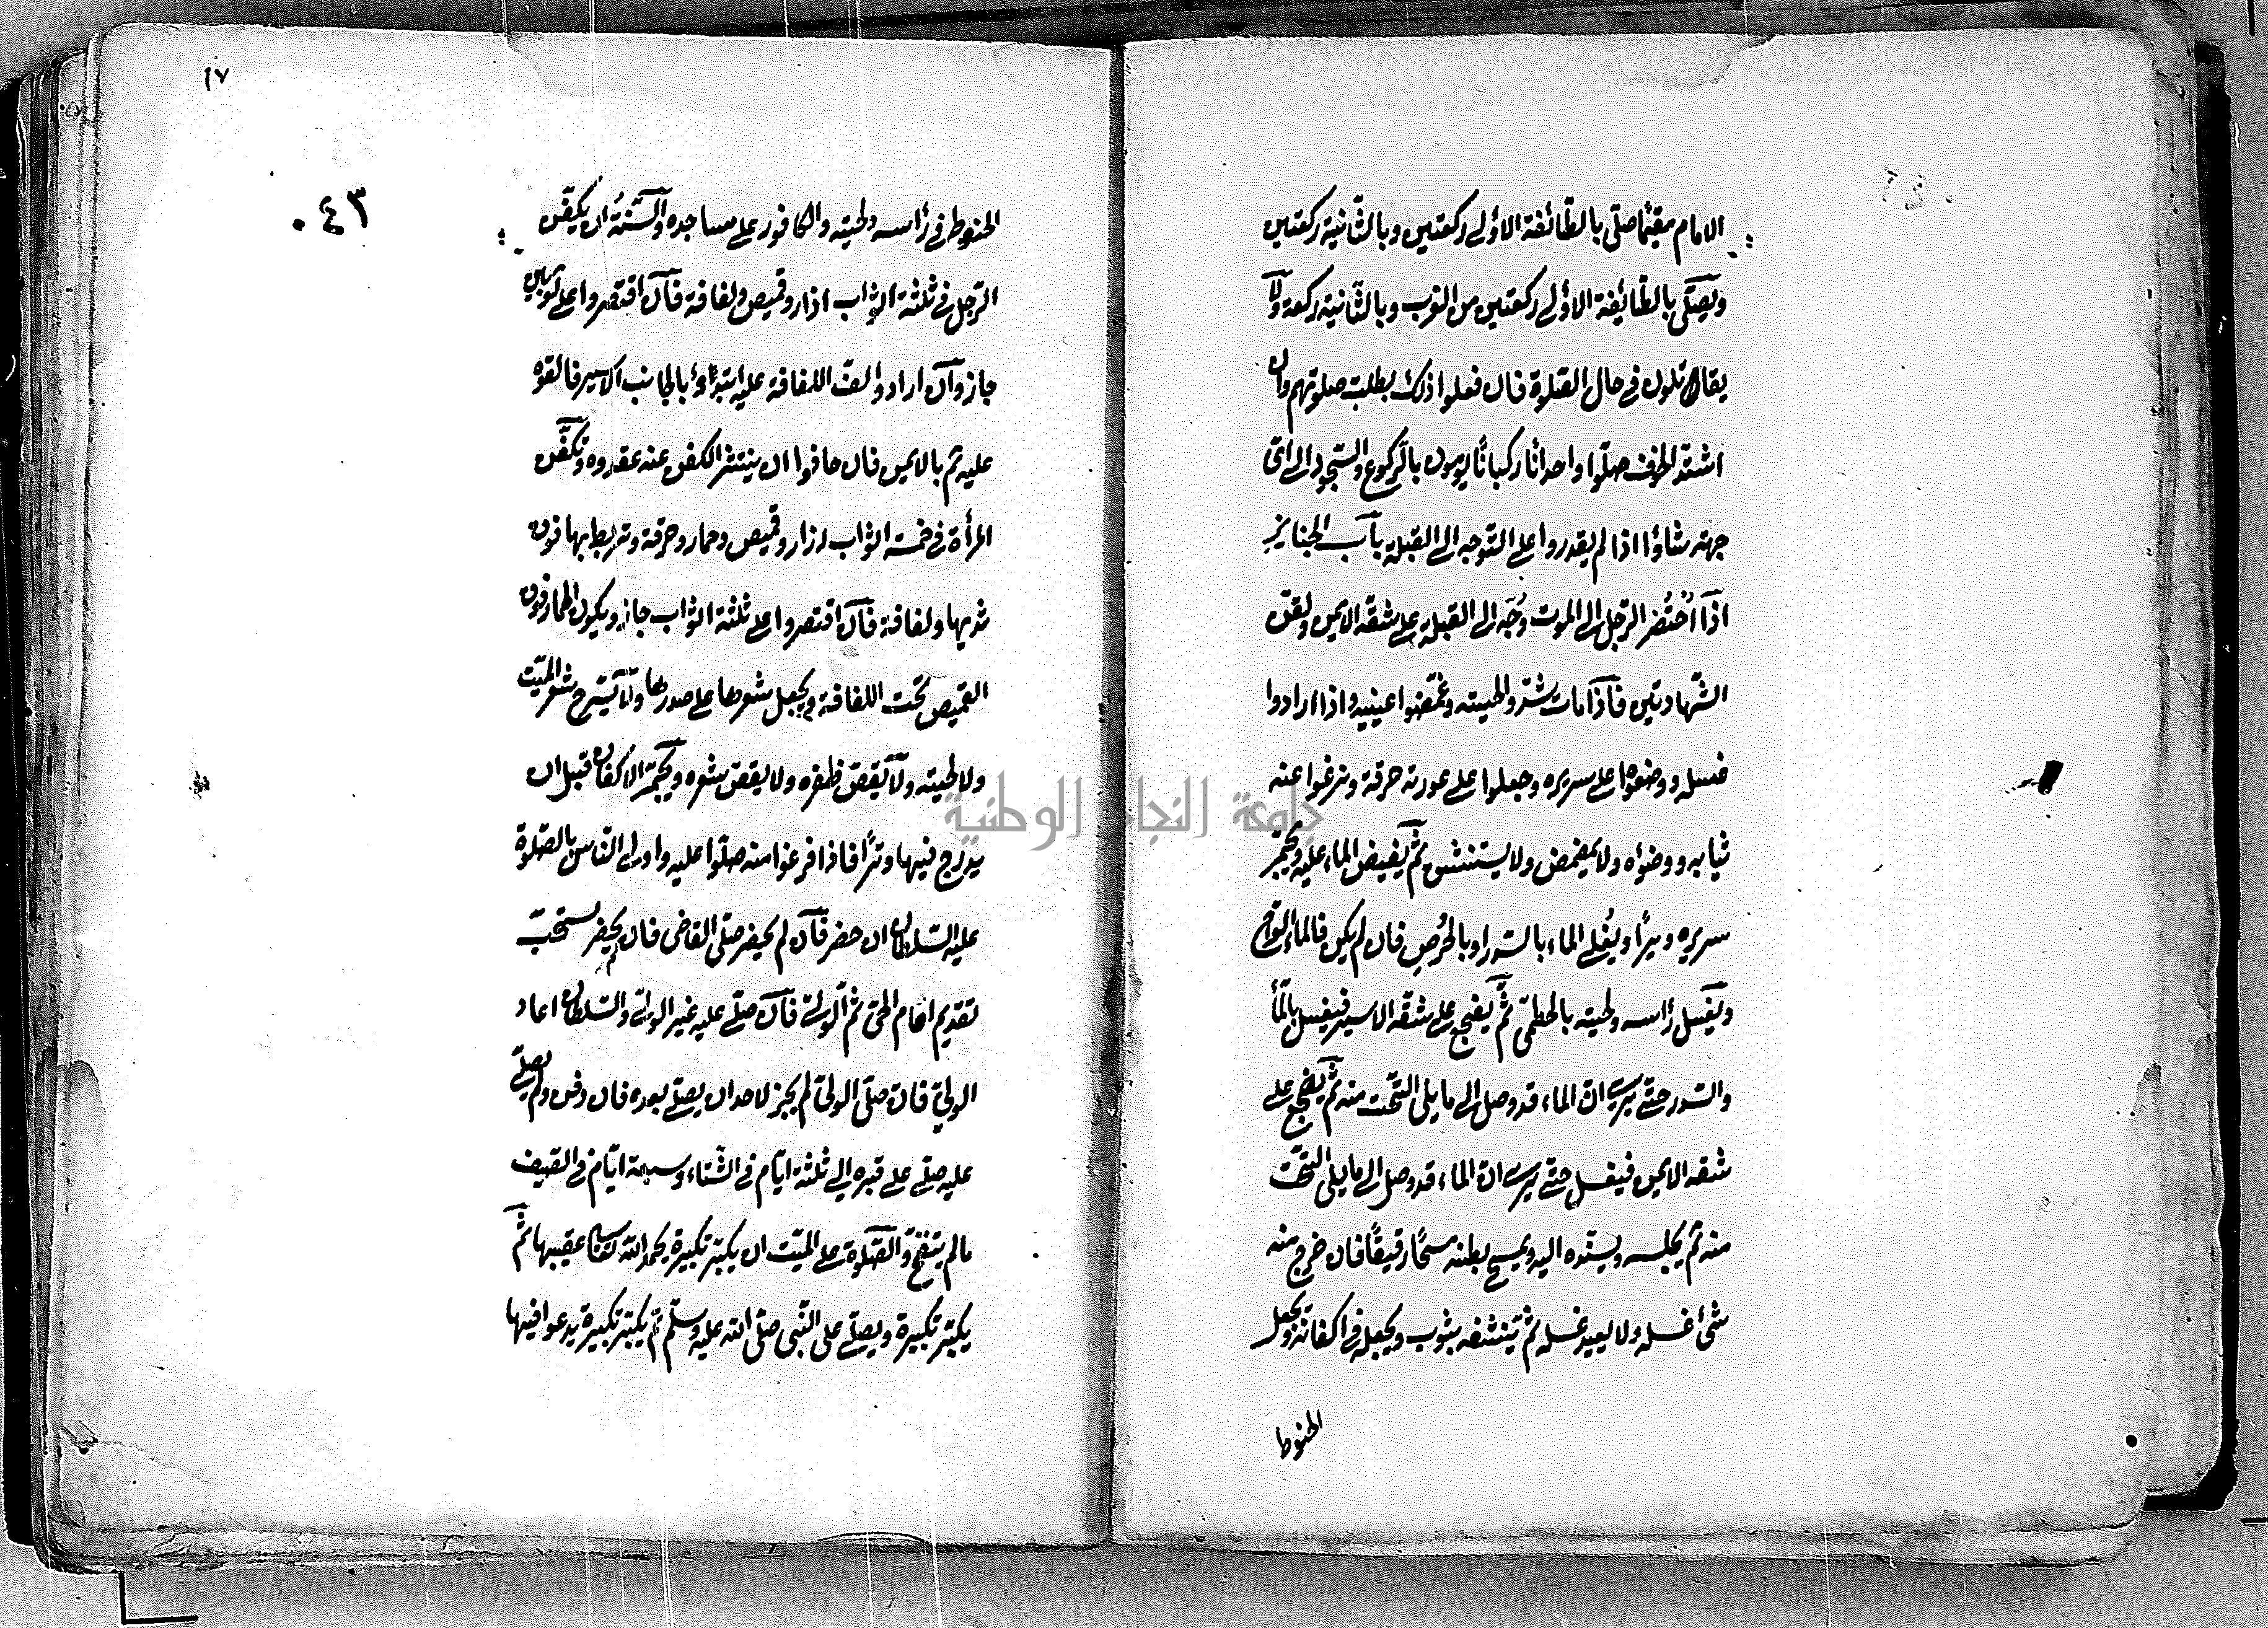 الامام مقيمًا صلى بالطّائفة الاولى ركعتين وبالثّانية ركعتين
ويصلّى بالطّائيفة الاولى ركعتين من المغرب وبالثّانية ركعة ولا
يقاتلون فى حال الصّلوة فان فعلوا ذلك بطلت صلوتهم وان
اشتدّ الخوف صلّوا واحدانًا ركبانًا يومون بالرّكوع والسّجود الى اىّ
جهة شاؤا اذا لم يقدروا على التّوجه الى القبلة باب الجنايز
اذا اُحتُضر الرّجل الى الموت وُجّه الى القبلة على شقّه الايمن ولقن
الشّهادتين فاذا مات شدّو الحيته وغمّضوا عينيه واذا ارادوا
غسله ووضعوا على سريره وجعلوا على عورته خرقة ونزعوا عنه
ثيابه ووضوأه ولا يمضمض ولا يستنشق ثمّ يفيض الماء عليه ويجمّر
سريره وترًا ويُغلى الماء بالسّدر او بالحُرُض فان لم يكن فالماء القراح
ويغسل رأسه ولحيته بالخطمىّ ثمّ يضجع على شقّه الايسر فيغسل بالمأ
والسّدر حتّى يرى انّ الماء قد وصل الى ما يلى التّحت منه ثمّ يضجع على
شقه الايمن فيغسل حتّى يرى انّ الماء قد وصل الى ما يلى التّحت
منه ثم يجلسه ويسنّده اليه ويمسح بطنه مسحًا رقيقًا فان خرج منه
شئ غسله ولا يعيد غسله ثمّ تنشفه بثوب ويجعله فى اكفانه ويجعل
الحنوط
١٧
٠٤٣
الحنوط فى رأسه ولحيته والكافور على مساجده والسّنّةُ ان يكفّن
الرّجل فى ثلثة اثواب ازار وقميص ولفافة فان اقتصروا على ثوبين
جاز وان ارادوا لفّ اللفافة عليه ابتدؤا بالجانب الايسر فالقوه
عليه ثم بالايمن فان خافوا ان ينتشر الكفن عنه عقدوه وتكفّن
المرأة فى خمسة اثواب ازار وقميص وخمار وخرقة وتربط بها فوق
ثديها ولفافة فان اقتصروا على ثلثة اثواب جاز ويكون الخمار فوق
القميص تحت اللفافة ويجعل شعرها على صدرها ولا يسّرح شعر الميّت
ولا لحيته ولا يقصّ ظفره ولا يقص شعره ويجمّر الاكفان قبل ان
يدرج فيها وترًا فاذا فرغوا منه صلّوا عليه واولى النّاس بالصّلوة
عليه السّلطان ان حضر فان لم يحضر صلّى القاضى فان لم يحضر يستحبّ
تقديم امام الحىّ ثمّ الولىّ فان صلّى عليه غير الولىّ والسّلطان اعاد
الولىّ فان صلّى الولىّ لم يجز لاحد ان يصلّى بعده فان دفن ولم يصلّى
عليه صلّى على قبره الى ثلثة ايّام فى الشّتاء وسبعة ايّام فى الصّيف
ما لم يتفسّخ والصّلوة على الميّت ان يكبّر تكبيرة يحمد الله تعالى عقيبها ثمّ
يكبّر تكبيرة ويصلّى على النّبى صلّى الله عليه وسلّم ثمّ يكبّر تكبيرة يدعوا فيها
جامعة النجاح الوطنية